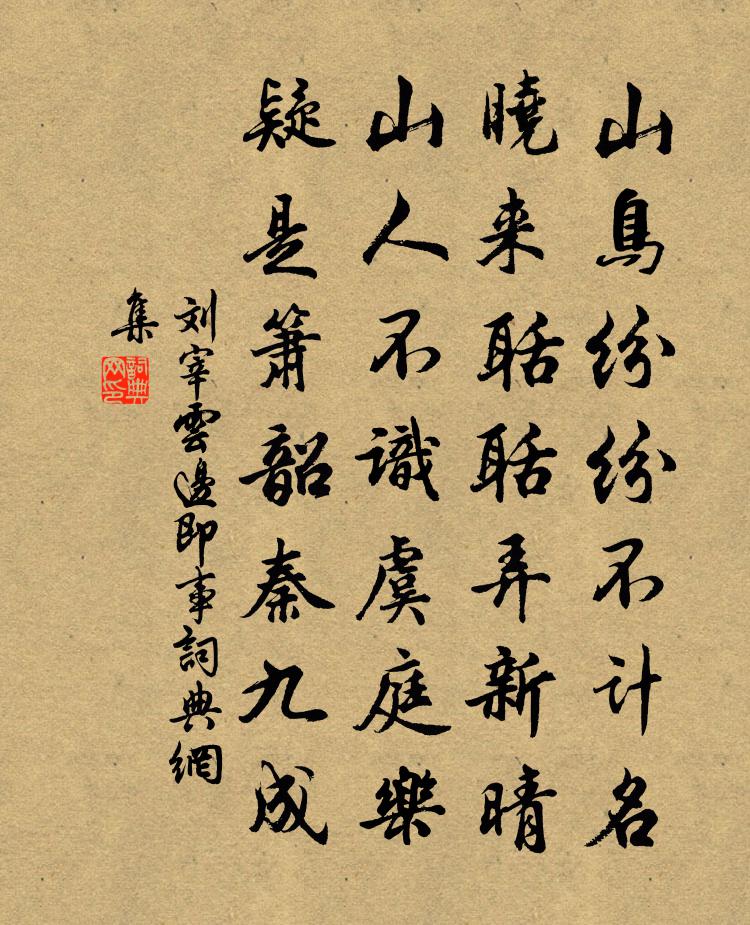 山鳥紛紛不計名
曉来聒聒弄新晴
山人不識虞庭樂
疑是簫韶秦九成
刘宰雲邊即事詞典網
集
詞典
网印